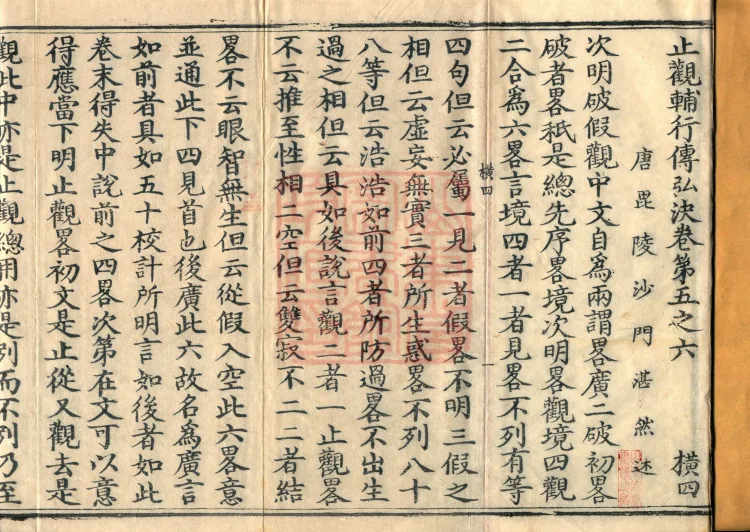 止觀輔行傳弘決卷第五之六　橫四
唐毘陵沙門湛然述
次明破假觀中文自爲兩謂畧廣二破初畧
破者畧秖是總先序畧境次明畧觀境四觀
二合爲六畧言境四者一者見畧不列有等
橫四　一
四句但云必屬一見二者假畧不明三假之
相但云虛妄無實三者所生惑畧不列八十
八等但云浩浩如前四者所防過畧不出生
過之相但云具如後說言觀二者一止觀畧
不云推至性相二空但云雙寂不二二者結
畧不云眼智無生但云從假入空此六畧意
並通此下四見首也後廣此六故名爲廣言
如前者具如五十校計所明言如後者如此
卷末得失中說前之四畧次第在文可以意
得應當下明止觀畧初文是止從又觀去是
觀此中亦是止觀總用亦是列而不列乃至